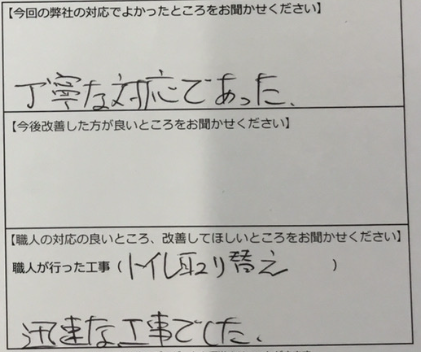 【今回の弊社の対応でよかったところをお聞かせください】
丁寧な対応であった.
【今後改善した方が良いところをお聞かせください】
【職人の対応の良いところ、改善してほしいところをお聞かせください】
職人が行った工事（トイレ取り替え）
迅速な工事でした.